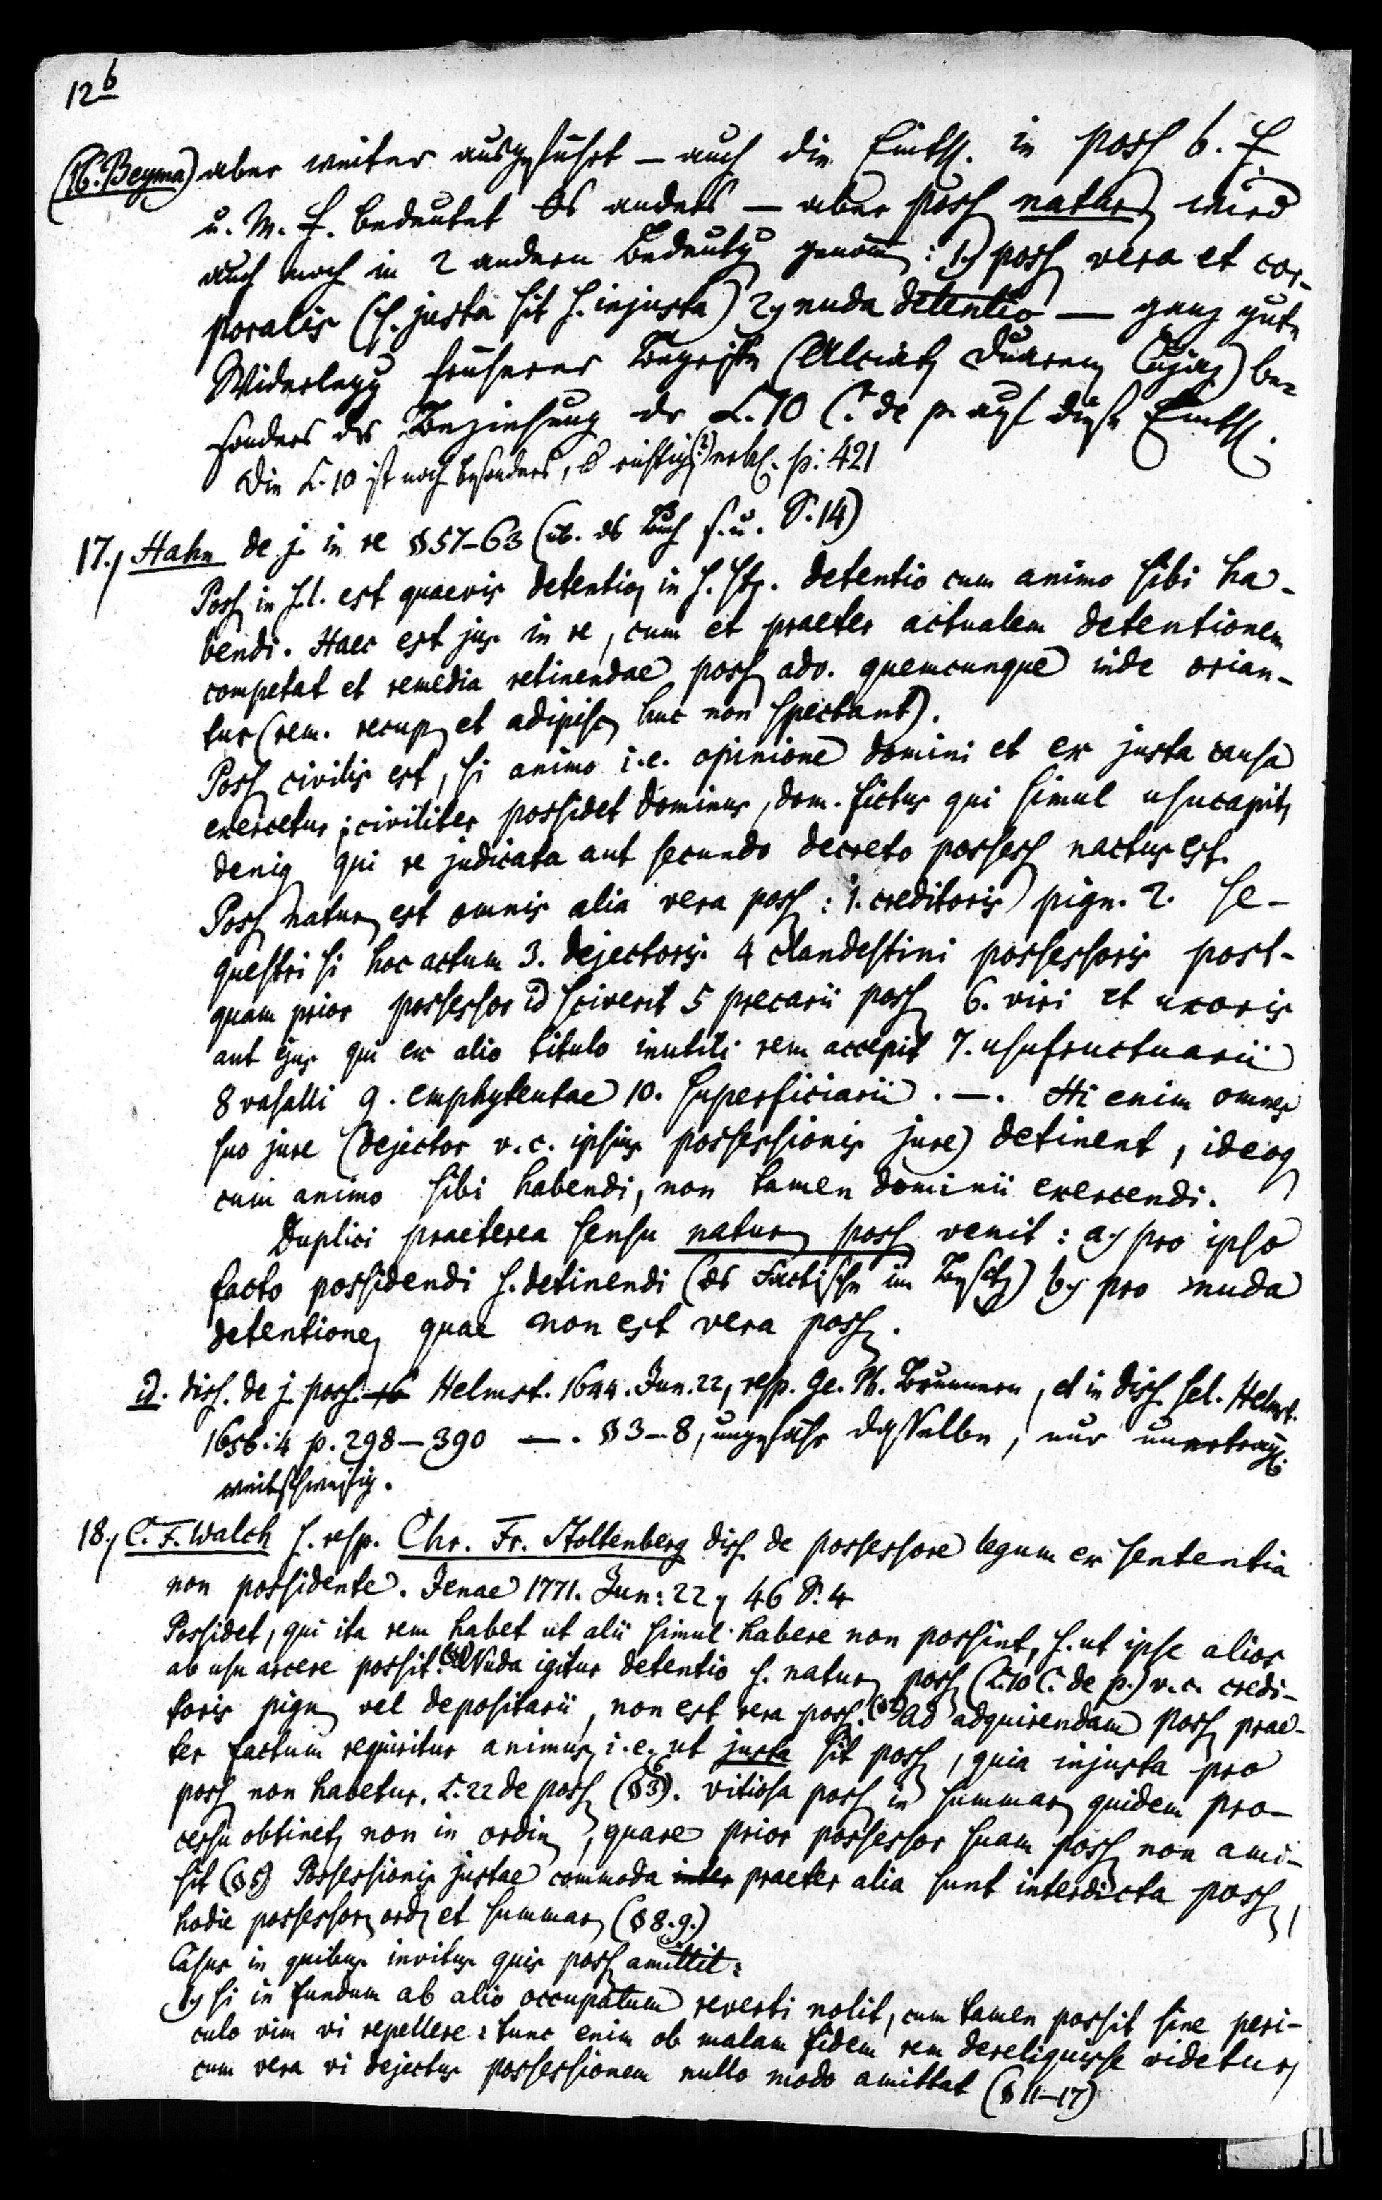 12b
(16. Beyma) aber weiter ausgeführt — auch die Einth. in poss b. f.
u. m. f. bedeutet es anders — aber poss natur wird
auch noch in 2 andern Bedeutg genom̄: 1.) poss vera et cor-
poralis (s. justa sit s. injusta) 2) nuda detentio — ganz gute
Widerlegg früherer Begriffe (Alciat, Duaren, Cujaz) be-
sonders der Beziehung der L. 10 C. de p. auf diese Einth.
Die L. 10 ist noch besonders, richtig (?) erkl. p. 421
17.) Hahn de j. in re §57–63 (üb. das Buch s. u. S. 14)
Poss in s. l. est quaevis detentio, in s. str. detentio cum animo sibi ha-
bendi. Haec est jus in re, cum et praeter actualem detentionem
competat et remedia retinendae poss adv. quemcunque inde orian-
tur (rem. recup et adipisc huc non spectant).
Poss civilis est, si animo i. e. opinione domini et ex justa causa
exercetur; civiliter possidet dominus, dom. fictus qui simul usucapit,
deniq qui re judicata aut secundo decreto possess nactus est.
Poss natur est omnis alia vera poss: 1. creditoris pign. 2. se-
questri si hoc actum 3. dejectoris 4 clandestini possessoris post-
quam prior possessor id sciverit 5 precarii poss 6. viri et uxoris
aut ejus qui ex alio titulo inutili rem accepit 7. usufructuarii
8 vasalli 9. emphyteutae 10. superficiarii. —. Hi enim omnes
suo jure (dejector v. c. ipsius possessionis jure) detinent, ideoq
cum animo sibi habendi, non tamen dominii exercendi.
Duplici praeterea sensu natur poss venit: a) pro ipso
facto possidendi s. detinendi (das Factische im Besitz) b) pro nuda
detentione, quae non est vera poss.
id. diss. de j. poss. 16 Helmst. 1644. Jun. 22, resp. Ge. Brunnern, et in diss. sel. Helmst.
1656. 4 p. 298–390 —. §3–8, ungefähr dasselbe, nur unerträgl.
weitschweifig.
18.) C. F. Walch s. resp. Chr. Fr. Stoltenberg diss. de possessore legum ex sententia
non possidente. Jenae 1771. Jun: 22, 46 S. 4
Possidet, qui ita rem habet ut alii simul habere non possint, s. ut ipse alios
ab usu arcere possit. Nuda igitur detentio s. natur poss (L. 10 C. de p.) v. c. credi-
toris pign vel depositarii, non est vera poss. Ad adquirendam poss prae-
ter factum requiritur animus, i. e. ut justa sit poss, quia injusta pro
poss non habetur. L. 22 de poss. vitiosa poss in summar quidem pro-
cessu obtinet, non in ordin, quare prior possessor suam poss non ami-
sit (§5) Possessionis justae commoda inter praeter alia sunt interdicta poss,
hodie possessor ord et summar (§8. 9.)
Casus in quibus invitus quis poss amittit:
1) si in fundum ab alio occupatum reverti nolit, cum tamen possit sine peri-
culo vim vi repellere: tunc enim ob malam fidem rem dereliquisse videtur,
cum vera vi dejectus possessionem nullo modo amittat (§11–17)